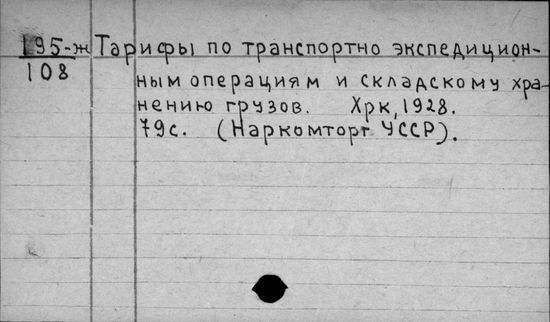 195-ж Тарифы по транспортно экспедицион-
108
ным операциям и складскому хра-
нению грузов. Хрк, 1928.
79с. (Наркомторг УССР).